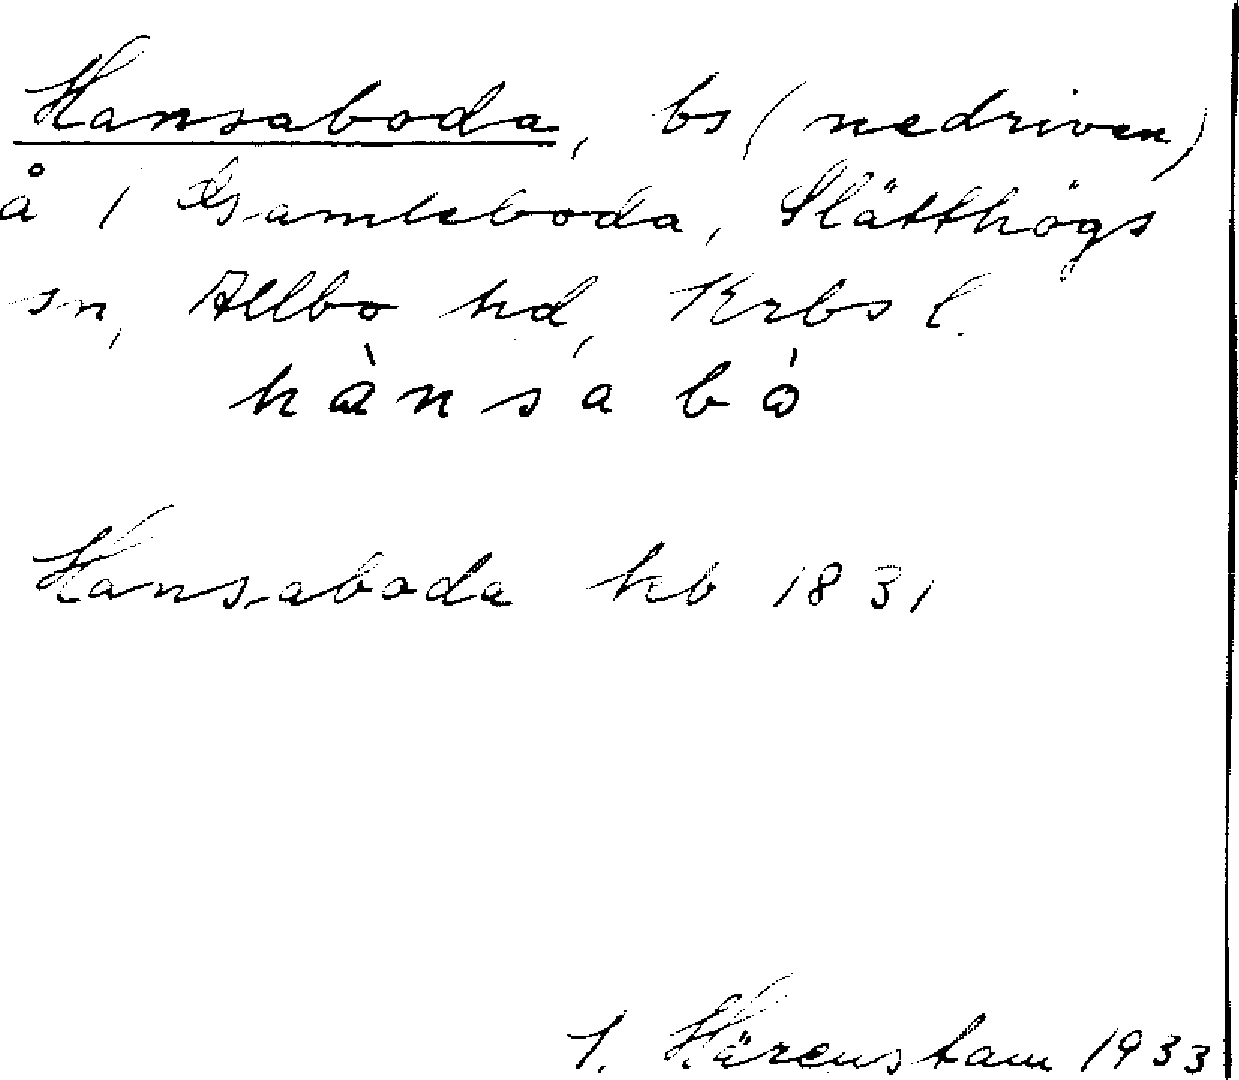 Hansaboda, bs (nedriven)
å 1 Gamleboda, Slätthögs
sn, Allbo hd, Krbs l.
hànsa bó
Hansaboda hb 1831
I. Härenstam 1933